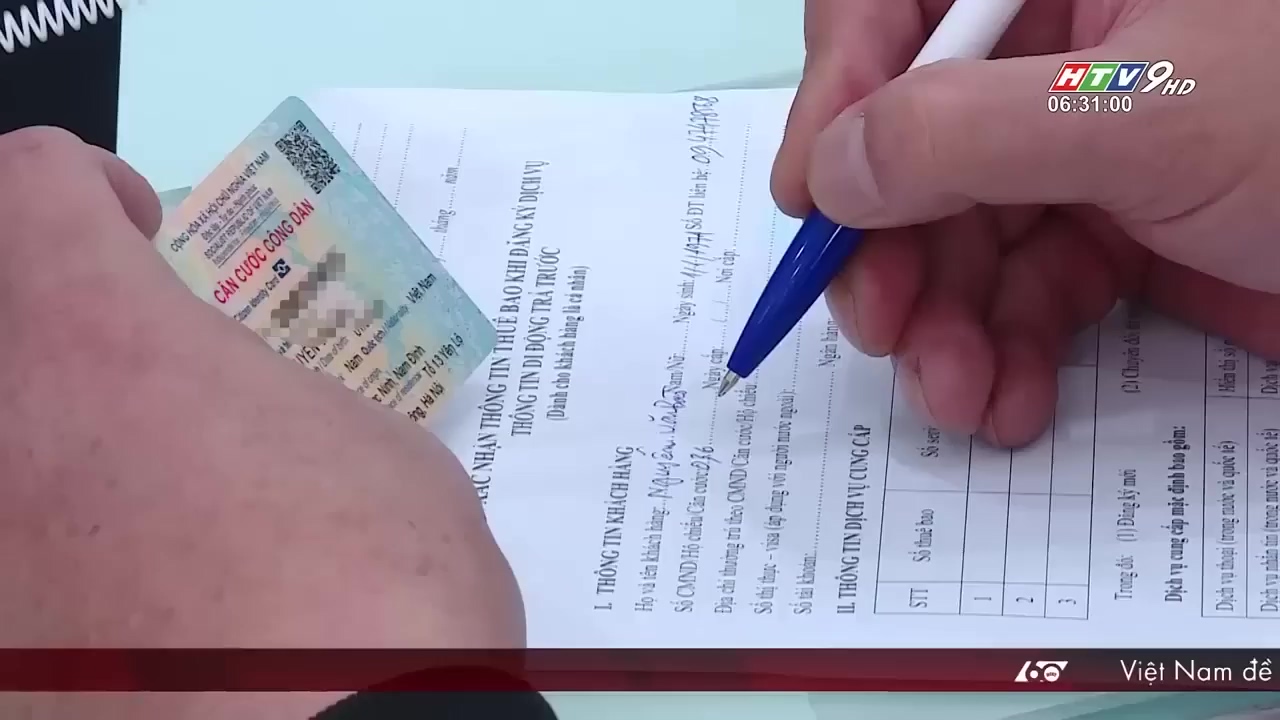 HTV9 HD
06:31:00
CỘNG HÒA XÃ HỘI CHỦ NGHĨA VIỆT NAM
CĂN CƯỚC CÔNG DÂN
Việt Nam
Ninh, Nam Định
Tổ 13 Yên Lộ
Hà Nội
tháng ..... năm
XÁC NHẬN THÔNG TIN THUÊ BAO KHI ĐĂNG KÝ DỊCH VỤ
THÔNG TIN DI ĐỘNG TRẢ TRƯỚC
(Dành cho khách hàng là cá nhân)
I. THÔNG TIN KHÁCH HÀNG
Họ và tên khách hàng: Nguyễn Văn Nam/Nữ: Ngày sinh: 1/1/1971 Số ĐT liên hệ:
Số CMND/Hộ chiếu/Căn cước: 036 Ngày cấp: / / Nơi cấp:
Địa chỉ thường trú theo CMND/Căn cước/Hộ chiếu:
Số thị thực - visa (áp dụng với người nước ngoài):
Số tài khoản: Ngân hàng:
II. THÔNG TIN DỊCH VỤ CUNG CẤP
STT Số thuê bao Số
1
2
3
Trong đó: (1) Đăng ký mới (2) Chuyển đổi
Dịch vụ cung cấp mặc định bao gồm:
Dịch vụ thoại (trong nước và quốc tế) Hiển thị số
Dịch vụ nhắn tin (trong nước và quốc tế) Dịch
60 giây Việt Nam đề